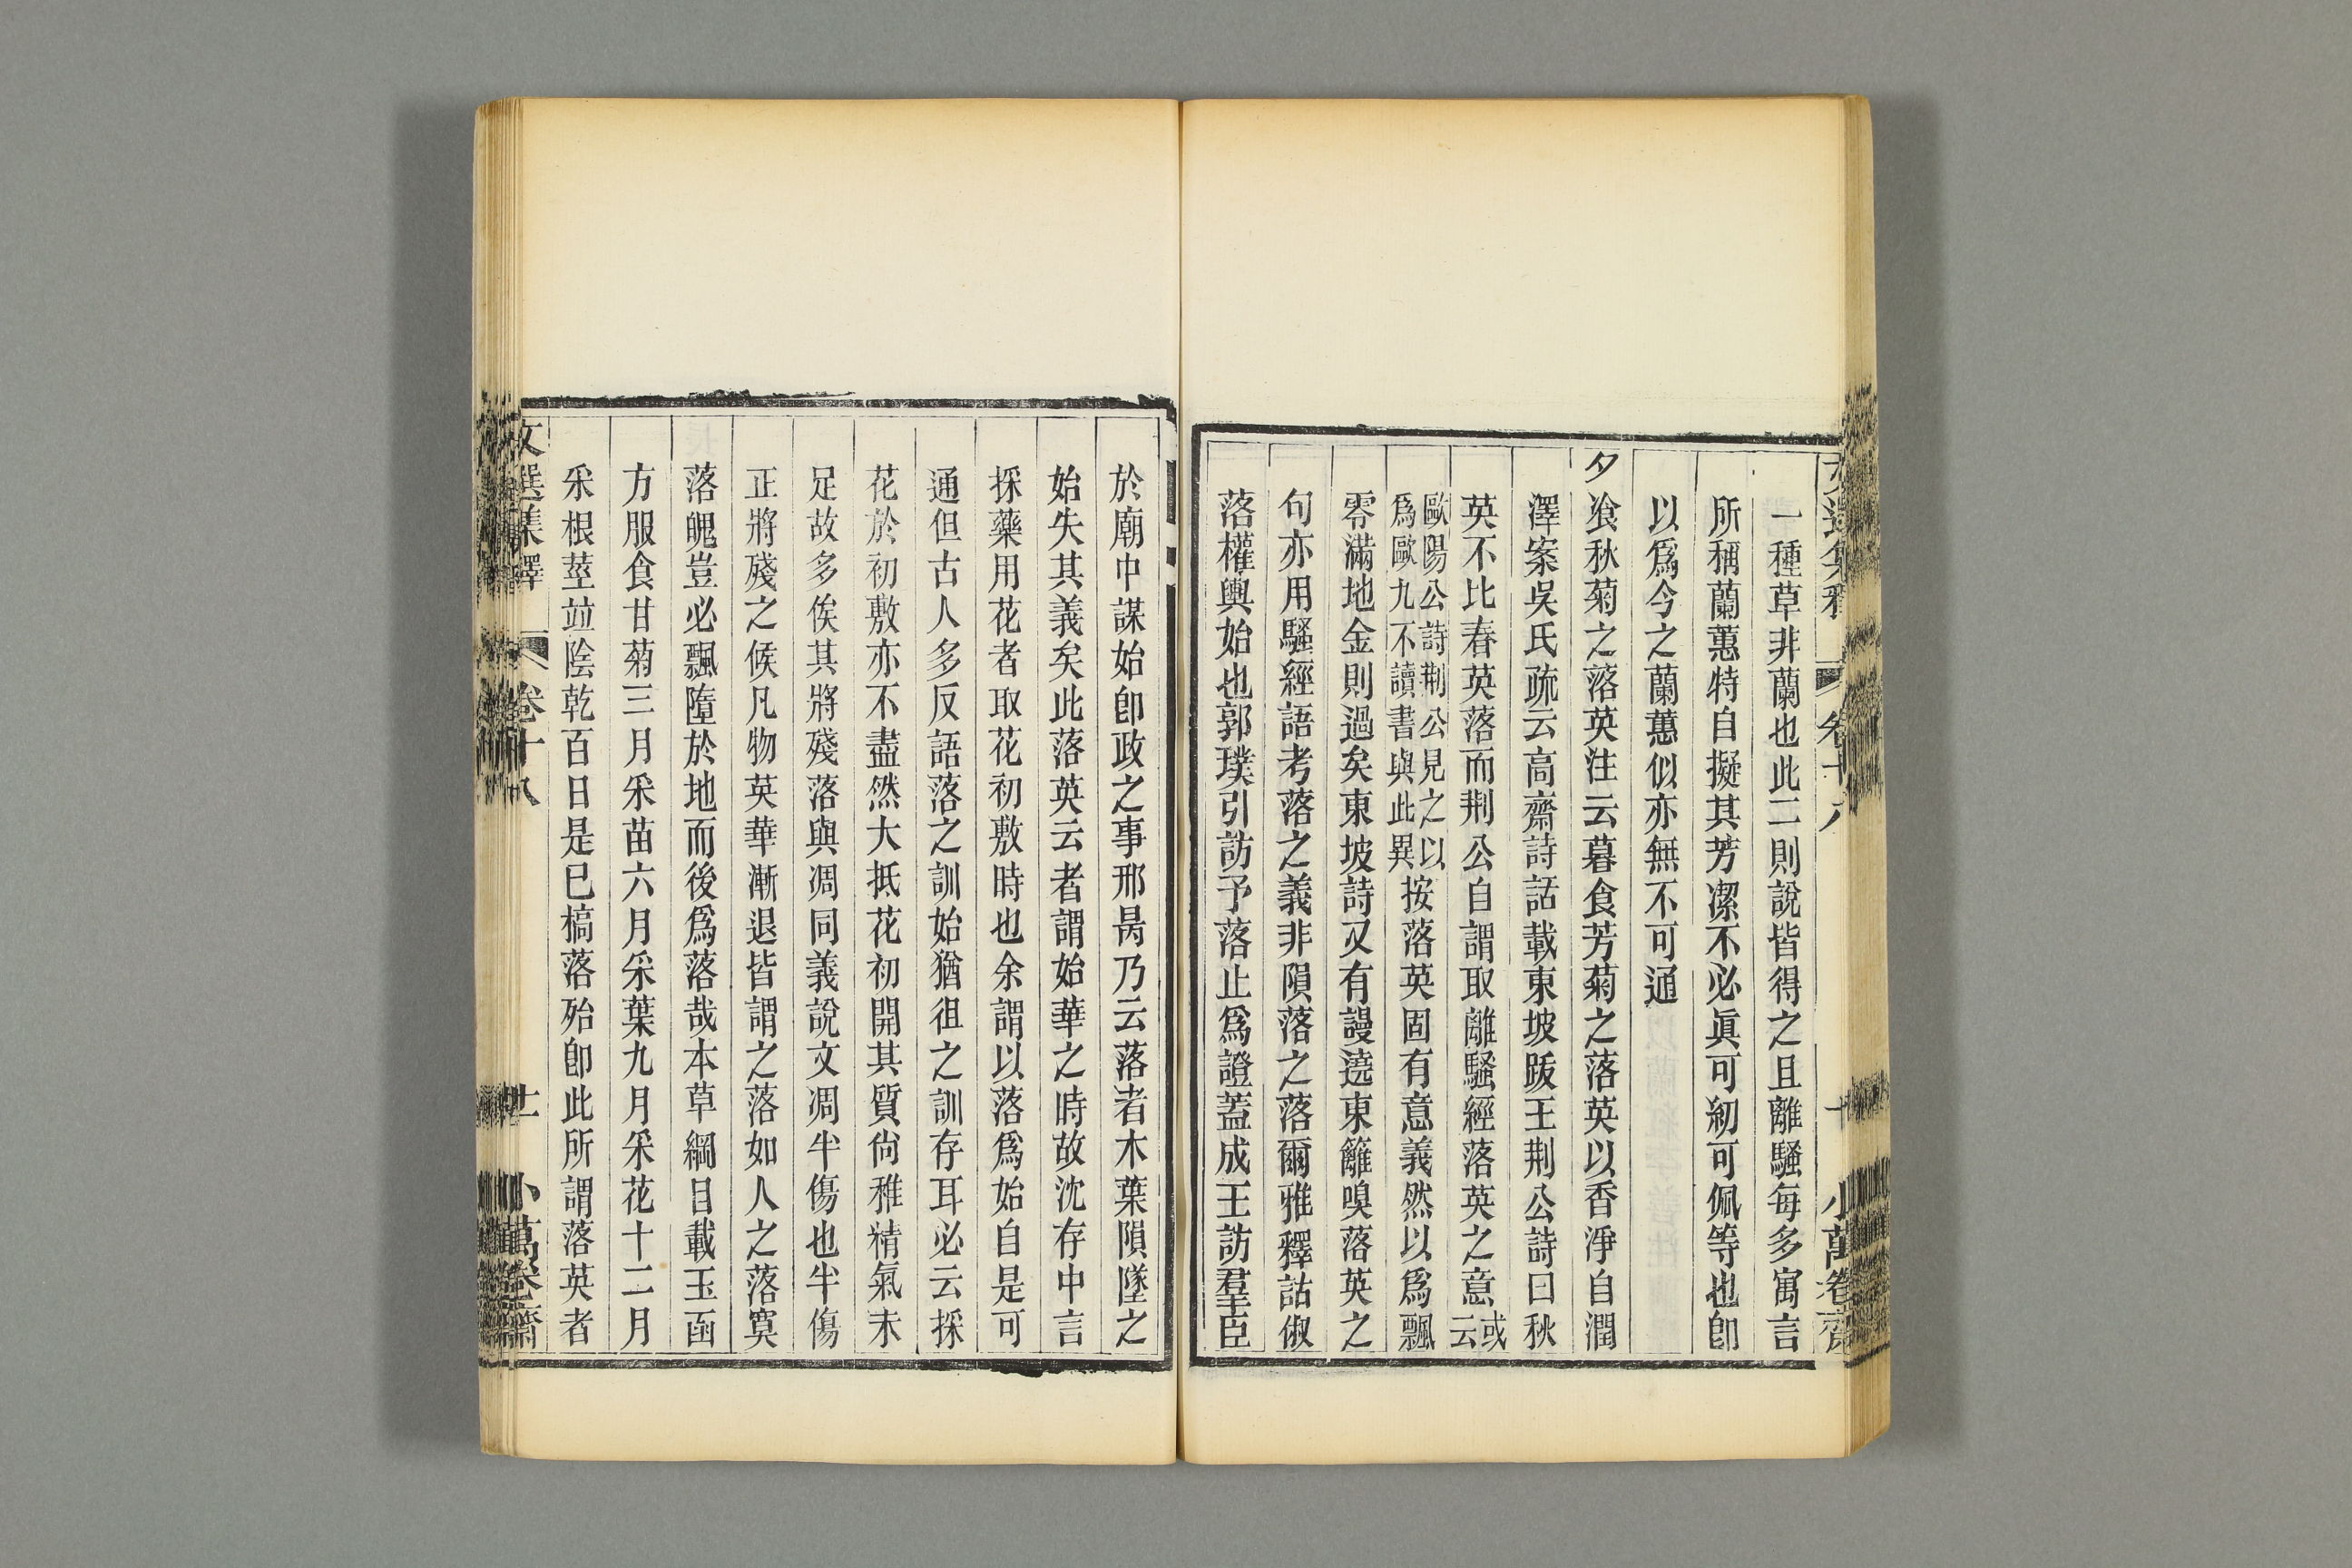 一種草非蘭也此二則說皆得之且離騷每多寓言
所稱蘭蕙特自擬其芳潔不必眞可紉可佩等也卽
以爲今之蘭蕙似亦無不可通
夕飡秋菊之落英注云暮食芳菊之落英以香淨自潤
澤案吳氏疏云高齋詩話載東坡跋王荆公詩曰秋
英不比春英落而荆公自謂取離騷經落英之意或云
歐陽公詩荆公見之以爲歐九不讀書與此異按落英固有意義然以爲飄
零滿地金則過矣東坡詩又有謾遶東籬嗅落英之
句亦用騷經語考落之義非隕落之落爾雅釋詁俶
落權輿始也郭璞引訪予落止爲證蓋成王訪羣臣
於廟中謀始卽政之事邢昺乃云落者木葉隕墜之
始失其義矣此落英云者謂始華之時故沈存中言
採藥用花者取花初敷時也余謂以落爲始自是可
通但古人多反語落之訓始猶徂之訓存耳必云採
花於初敷亦不盡然大抵花初開其質尙稚精氣未
足故多俟其將殘落與凋同義說文凋半傷也半傷
正將殘之候凡物英華漸退皆謂之落如人之落寞
落魄豈必飄墮於地而後爲落哉本草綱目載玉函
方服食甘菊三月采苗六月采葉九月采花十二月
采根莖竝陰乾百日是已槁落殆卽此所謂落英者
文選集釋 卷十八 廿一 小萬卷齋